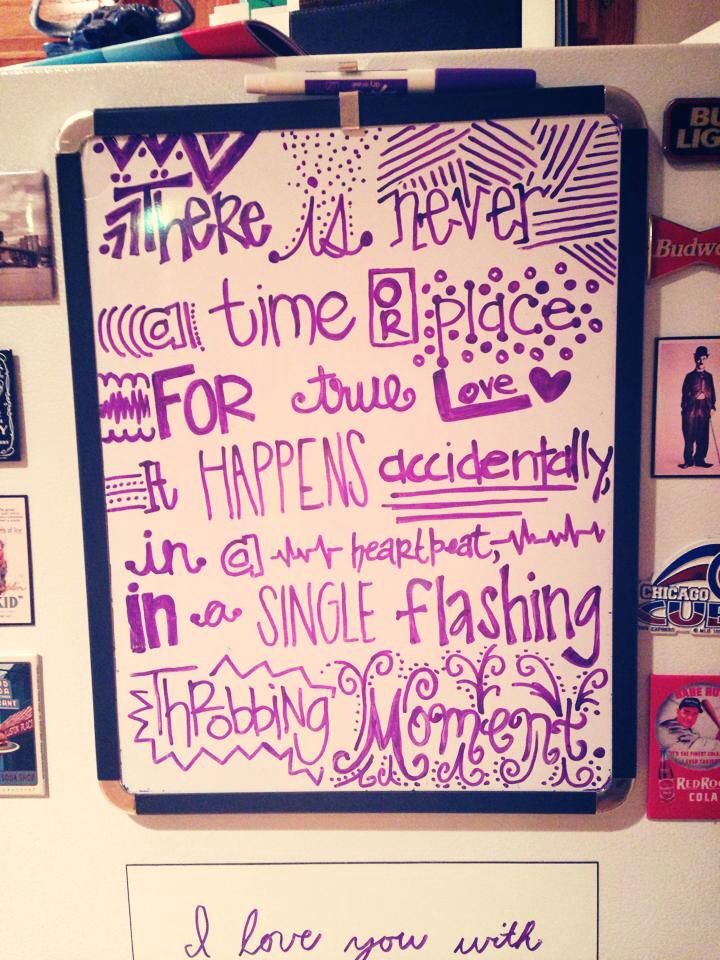 dry erase
There is never
a time OR place
FOR true Love
It HAPPENS accidentally,
in a heartbeat,
in a SINGLE flashing
Throbbing Moment.
I love you with
BU
LIG
Budw
CHICAGO
CUB
BABE RU
REDROC
COLA
KID"
SODA SHOP